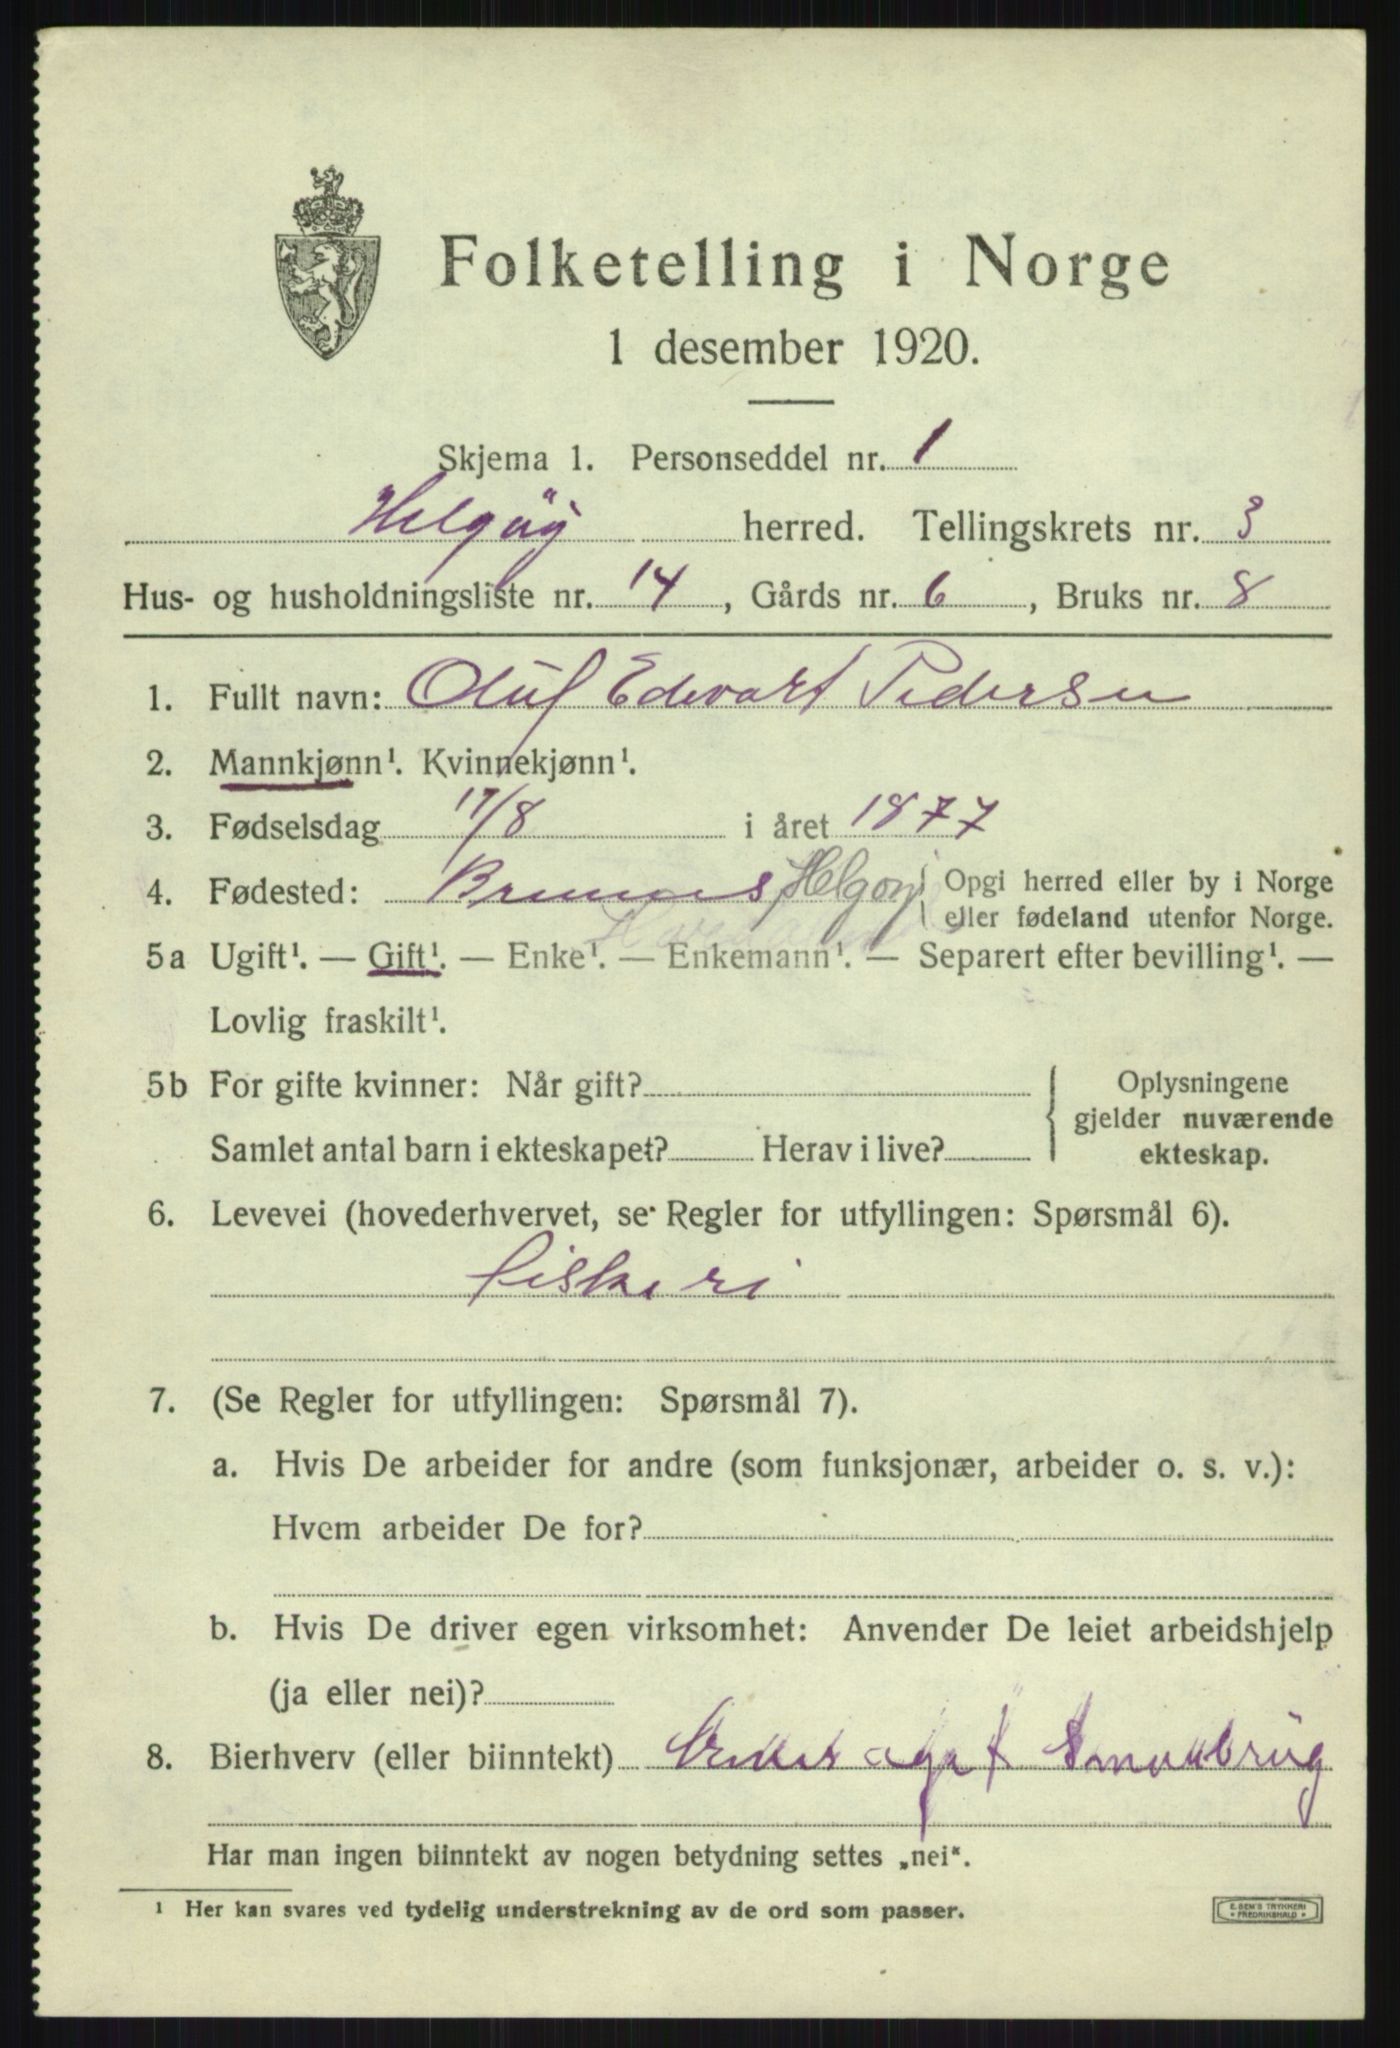 Folketelling i Norge
1 desember 1920.
Skjema 1. Personseddel nr. 1
Helgøy herred. Tellingskrets nr. 3
Hus- og husholdningsliste nr. 14, Gårds nr. 6, Bruks nr. 8
1. Fullt navn: Oluf Edvart Pedersen
2. Mannkjønn¹. Kvinnekjønn¹.
3. Fødselsdag 17/8 i året 1877
4. Fødested: Helgøy Opgi herred eller by i Norge
eller fødeland utenfor Norge.
5a Ugift¹. — Gift¹. — Enke¹. — Enkemann¹. — Separert efter bevilling¹. —
Lovlig fraskilt¹.
5b For gifte kvinner: Når gift? Oplysningene
gjelder nuværende
Samlet antal barn i ekteskapet? Herav i live? ekteskap.
6. Levevei (hovederhvervet, se Regler for utfyllingen: Spørsmål 6).
fiskeri
7. (Se Regler for utfyllingen: Spørsmål 7).
a. Hvis De arbeider for andre (som funksjonær, arbeider o. s. v.):
Hvem arbeider De for?
b. Hvis De driver egen virksomhet: Anvender De leiet arbeidshjelp
(ja eller nei)?
8. Bierhverv (eller biinntekt) Smaabrug
Har man ingen biinntekt av nogen betydning settes „nei“.
¹ Her kan svares ved tydelig understrekning av de ord som passer.
E. SEM'S TRYKKERI
• FREDRIKSHALD •